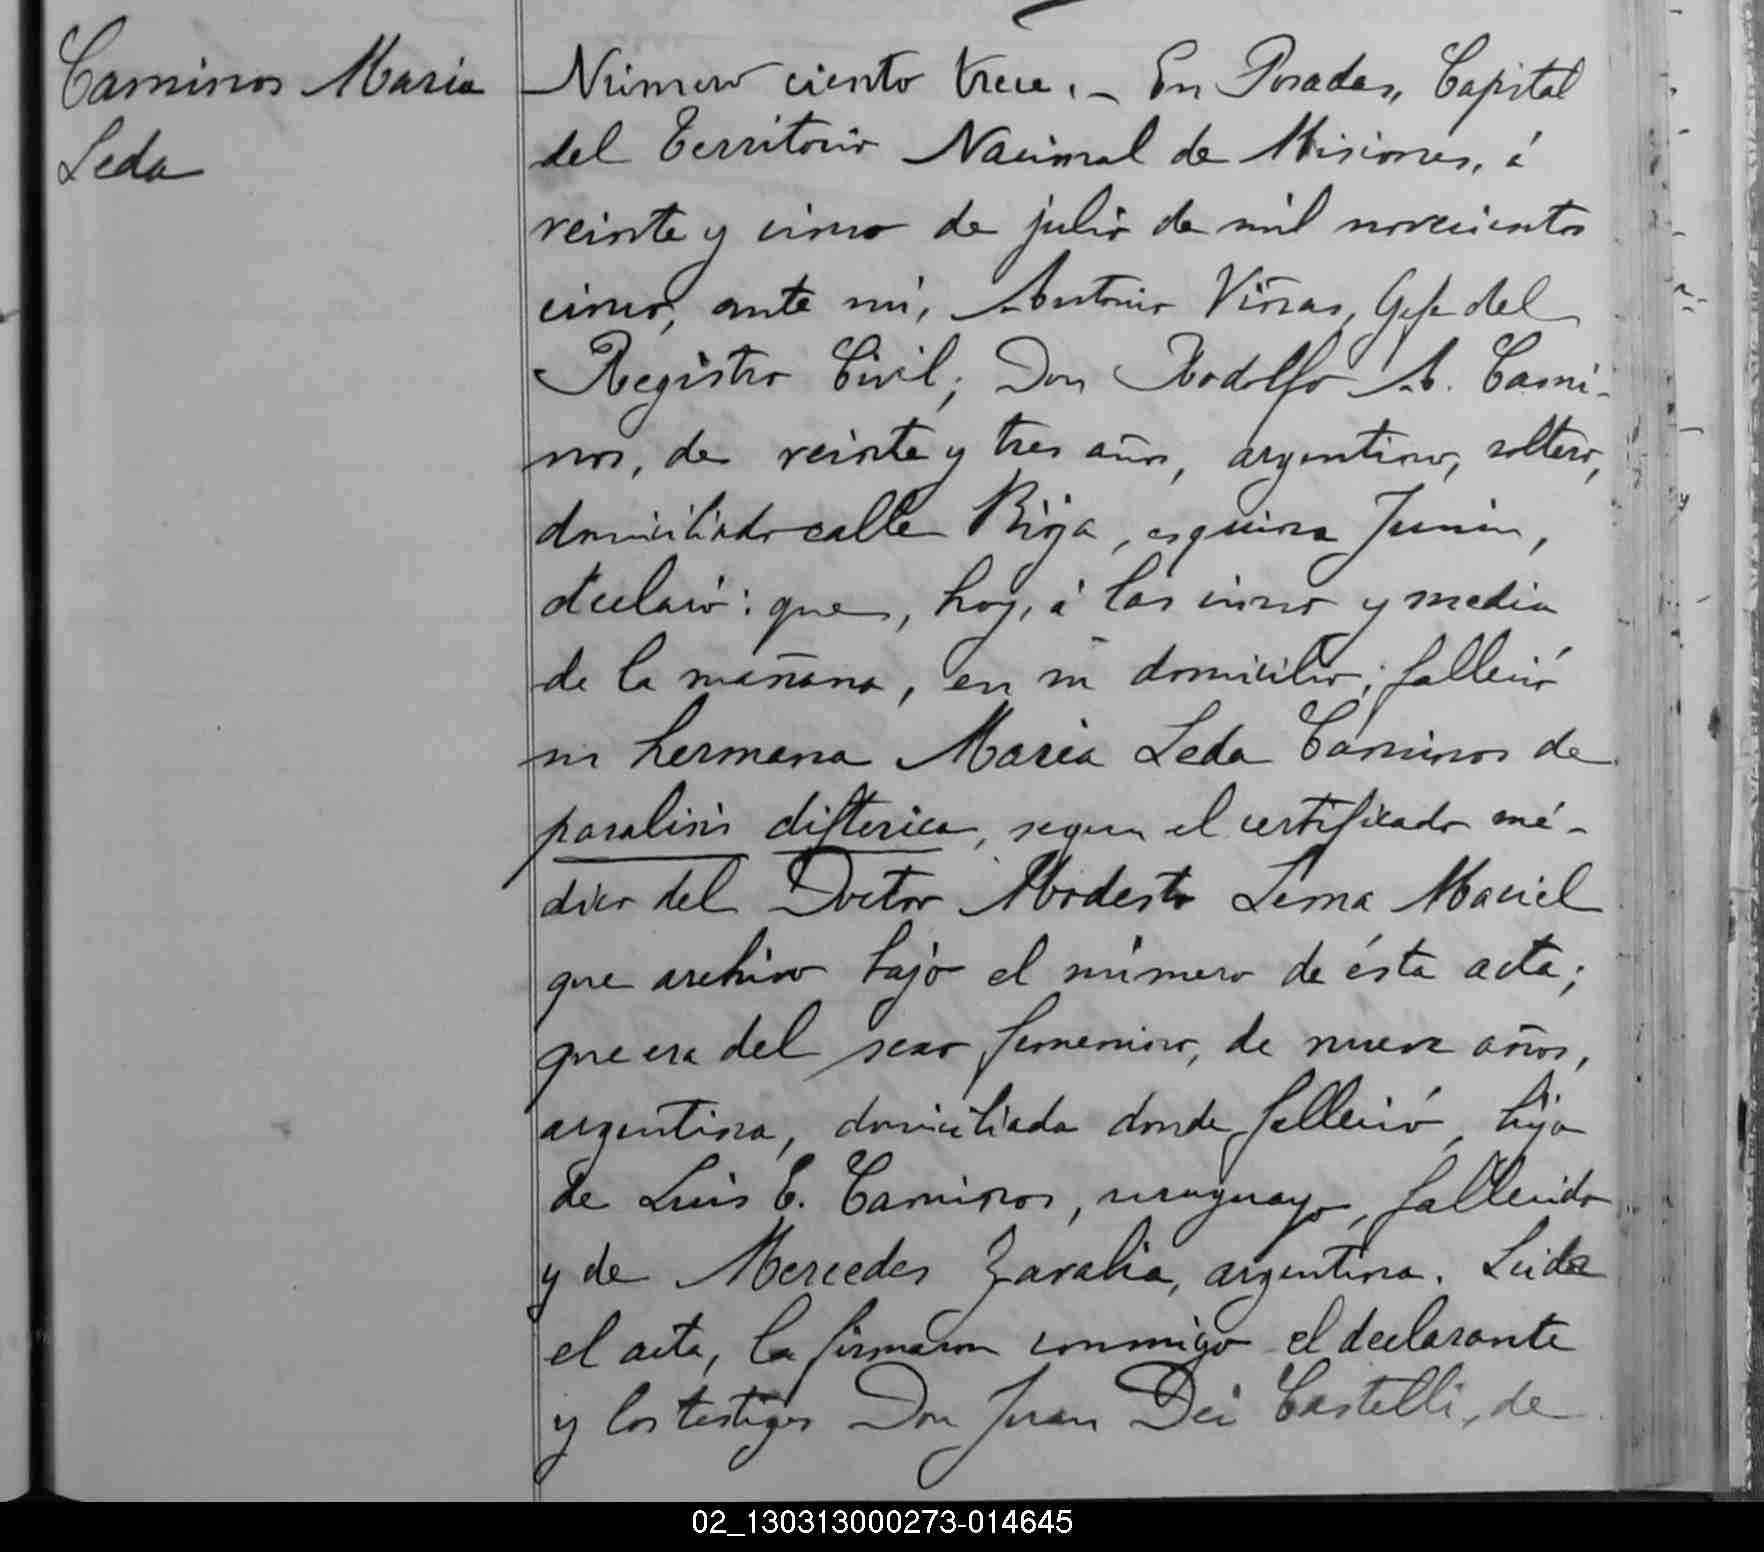 Caminos Maria
Leda
Número ciento trece. – En Posadas, Capital
del Territorio Nacional de Misiones, á
veinte y cinco de julio de mil novecientos
cinco, ante mi, Antonio Viñas, Gefe del
Registro Civil; Don Rodolfo A. Cami-
nos, de veinte y tres años, argentino, soltero,
domiciliado calle Rioja, esquina Junin,
declaró: que, hoy, á las cinco y media
de la mañana, en su domicilio, falleció
su hermana Maria Leda Caminos de
paralisis difterica, segun el certificado mé-
dico del Doctor Modesto Lema Maciel
que archivo bajo el número de ésta acta;
que era del sexo femenino, de nueve años,
argentina, domiciliada donde falleció, hija
de Luis E. Caminos, uruguayo, fallecido
y de Mercedes Zavalia, argentina. Leida
el acta, la firmaron conmigo el declarante
y los testigos Don Juan Dei Castelli, de
02_130313000273-014645